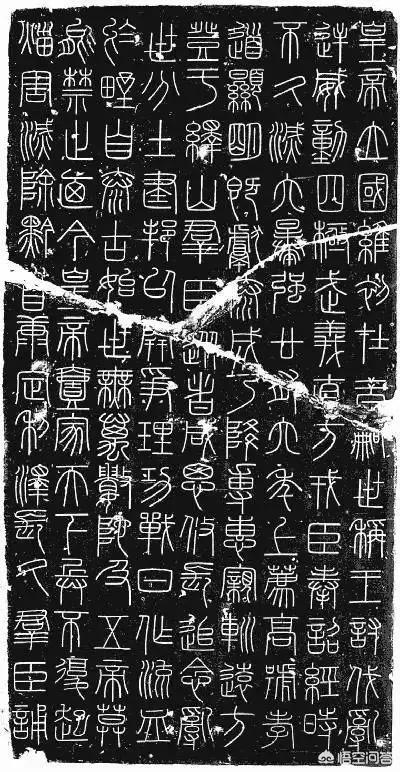 皇帝立國維初在昔嗣世稱王討伐亂
逆威動四極武義直方戎臣奉詔經時
不久滅六暴強廿有六年上薦高號孝
道顯明既獻泰成乃降專惠親巡遠方
登于繹山羣臣從者咸思攸長追念亂
世分土建邦以開爭理功戰日作流血
於野自泰古始世無萬數陀及五帝莫
能禁止廼今皇帝壹家天下兵不復起
災害滅除黔首康定利澤長久羣臣誦
悟空问答